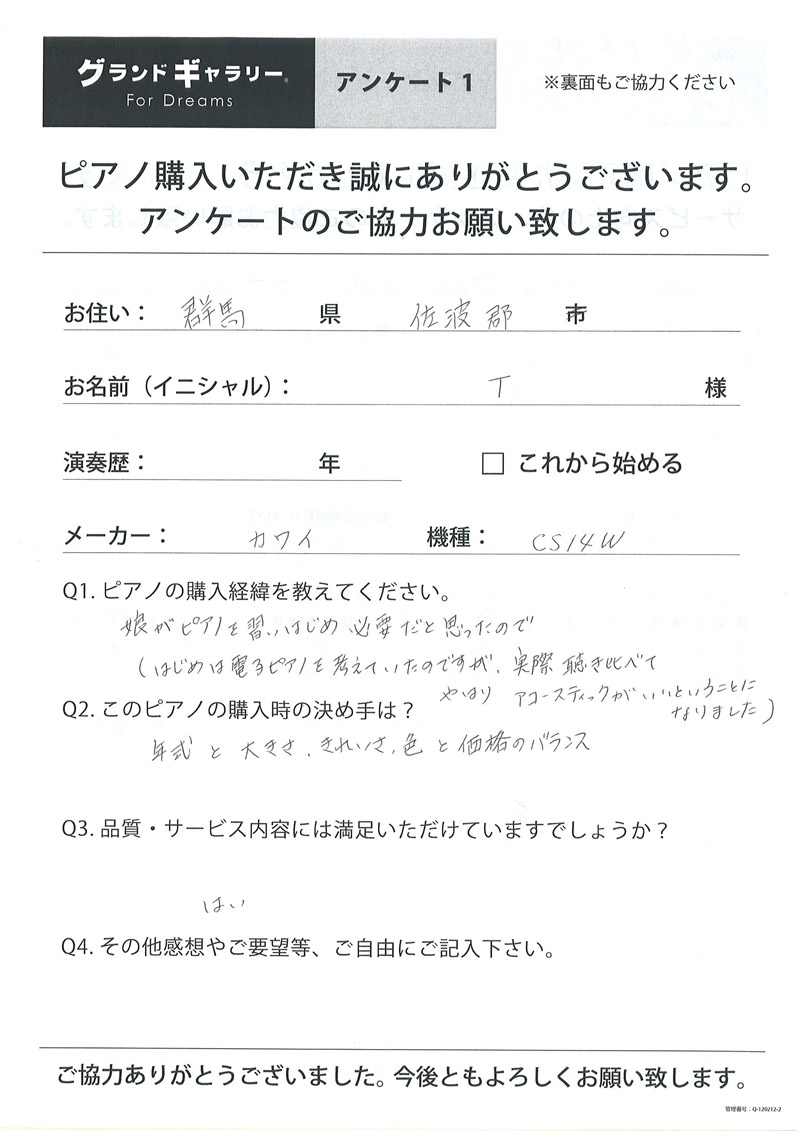 グランドギャラリー®
For Dreams
アンケート1
※裏面もご協力ください
ピアノ購入いただき誠にありがとうございます。
アンケートのご協力お願い致します。
お住い： 群馬 県 佐波郡 市
お名前（イニシャル）： T 様
演奏歴： 年 □ これから始める
メーカー： カワイ 機種： CS14W
Q1. ピアノの購入経緯を教えてください。
娘がピアノを習いはじめ必要だと思ったので
（はじめは電子ピアノを考えていたのですが、実際聴き比べて
やはり アコースティックがいいということに
なりました）
Q2. このピアノの購入時の決め手は？
年式と大きさ、きれいさ、色と価格のバランス
Q3. 品質・サービス内容には満足いただけていますでしょうか？
はい
Q4. その他感想やご要望等、ご自由にご記入下さい。
ご協力ありがとうございました。今後ともよろしくお願い致します。
管理番号：Q-120212-2